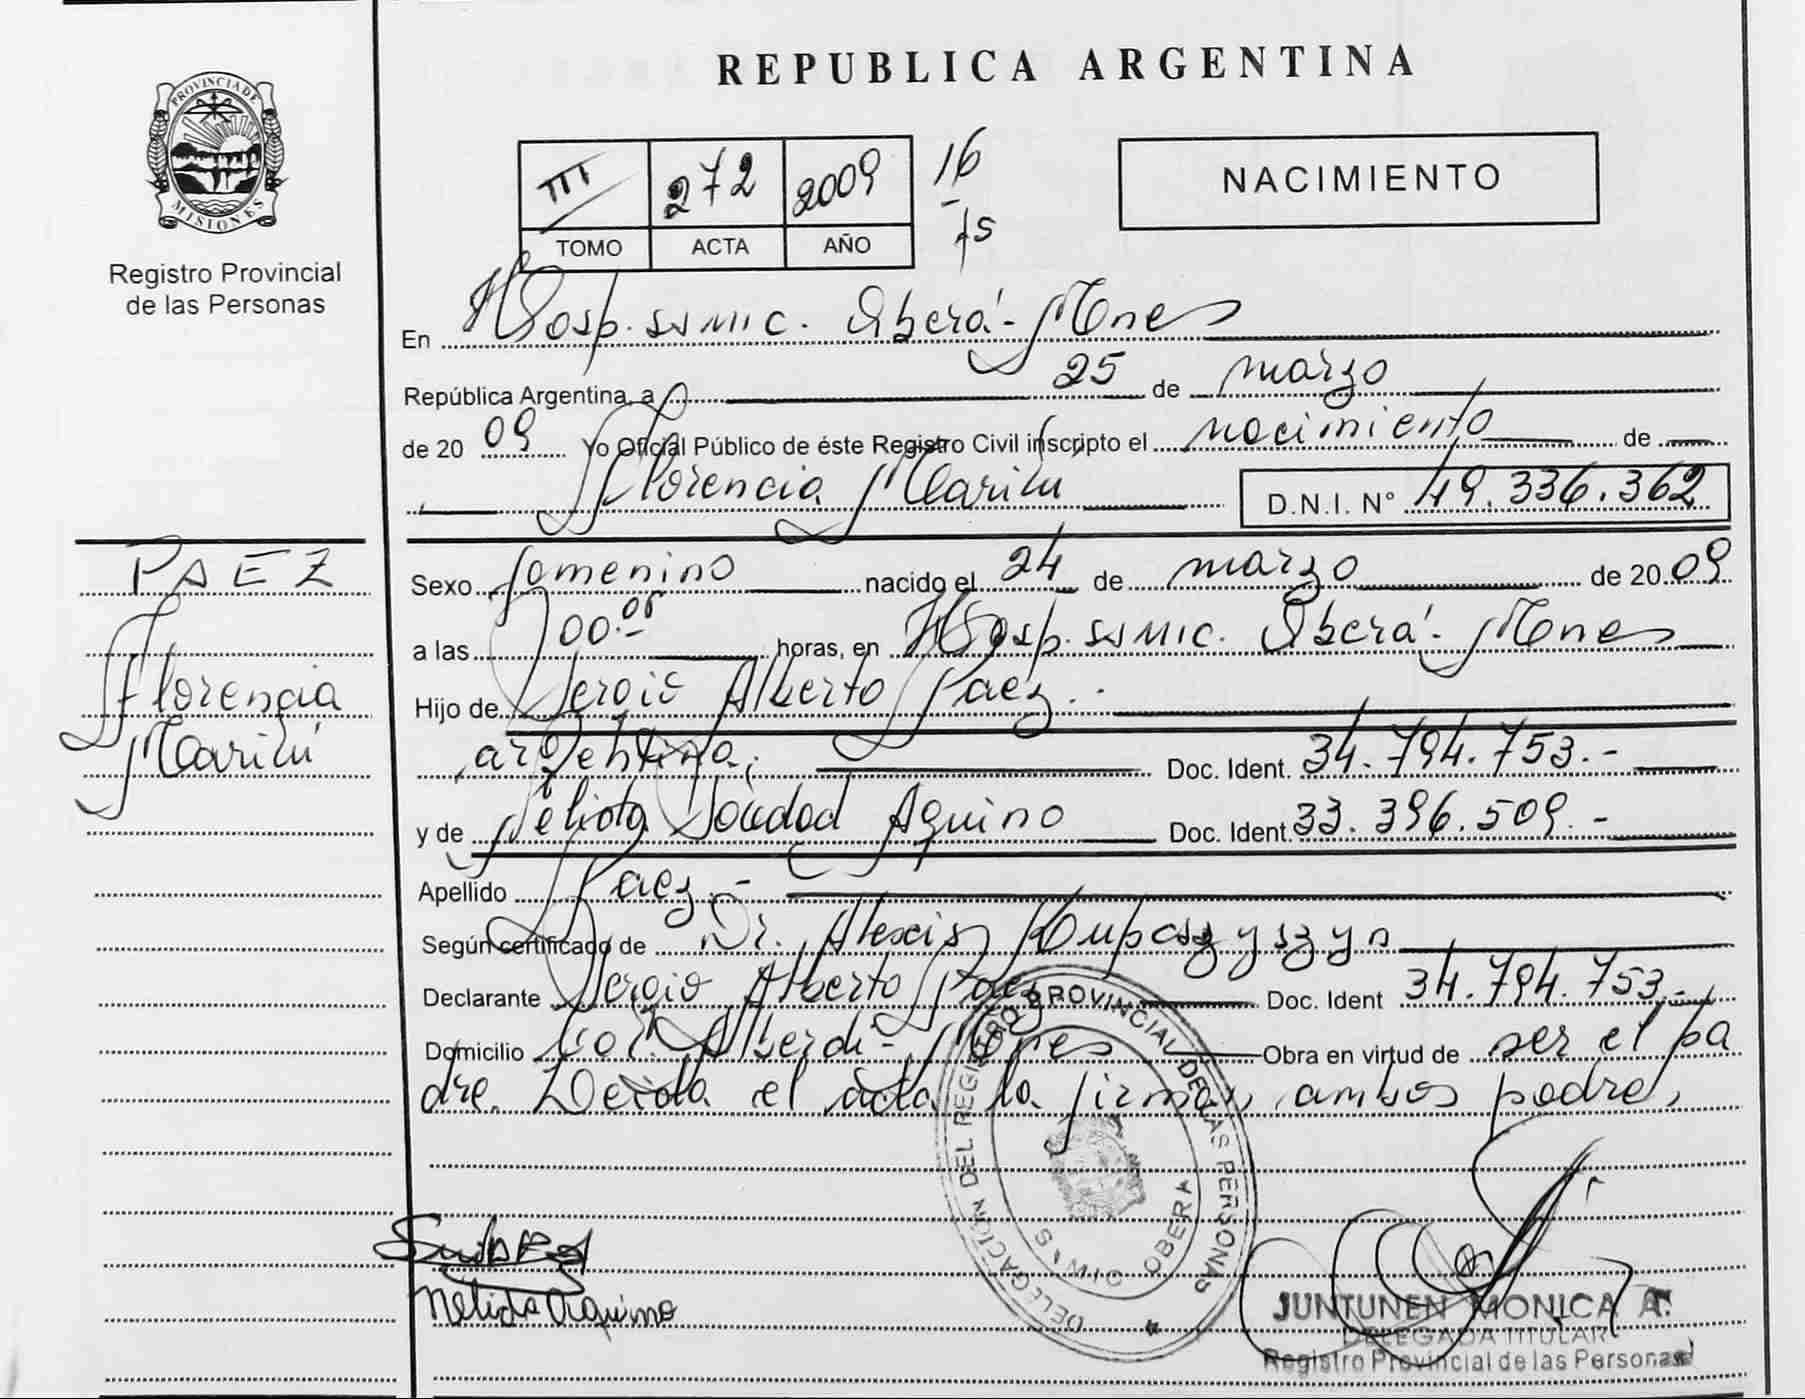 PROVINCIA DE
MISIONES
Registro Provincial
de las Personas
PAEZ
Florencia
Marilú
REPUBLICA ARGENTINA
III 272 2009
TOMO ACTA AÑO
16
15
NACIMIENTO
En Hosp. SAMIC. Oberá - Mnes
República Argentina, a 25 de marzo
de 2009 Yo Oficial Público de éste Registro Civil inscripto el nacimiento de
Florencia Marilú D.N.I. N° 49.336.362
Sexo femenino nacido el 24 de marzo de 2009
a las horas, en Hosp. SAMIC. Oberá - Mnes
Hijo de Sergio Alberto Paez.
argentina; Doc. Ident. 34.794.753.-
y de Nélida Soledad Aquino Doc. Ident 33.396.509.-
Apellido Paez.-
Según certificado de Dr. Alexis
Declarante Sergio Alberto Paez Doc. Ident 34.794.753.-
Domicilio Col. Alberdi - Mnes Obra en virtud de ser el pa
dre. Leída el acta la firman ambos padres
DELEGACIÓN DEL REGISTRO PROVINCIAL DE LAS PERSONAS
OBERA
Nelida Aquino
JUNTUNEN MONICA A.
DELEGADA TITULAR
Registro Provincial de las Personas